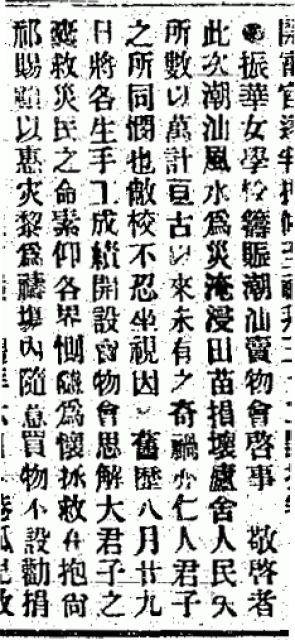 ●振華女學校籌賑潮汕賣物會啓事　敬啓者
此次潮汕風水為災淹浸田苗損壞廬舍人民久
所數以萬計亘古以來未有之奇禍少仁人君子
之所同憫也敝校不忍坐視因以舊歷八月廿九
日將各生手工成績開設賣物會思解大君子之
囊救災民之命素仰各界惻隱為懷拯救在抱尚
祁賜顧以惠灾黎為禱塲內隨意買物不設勸捐